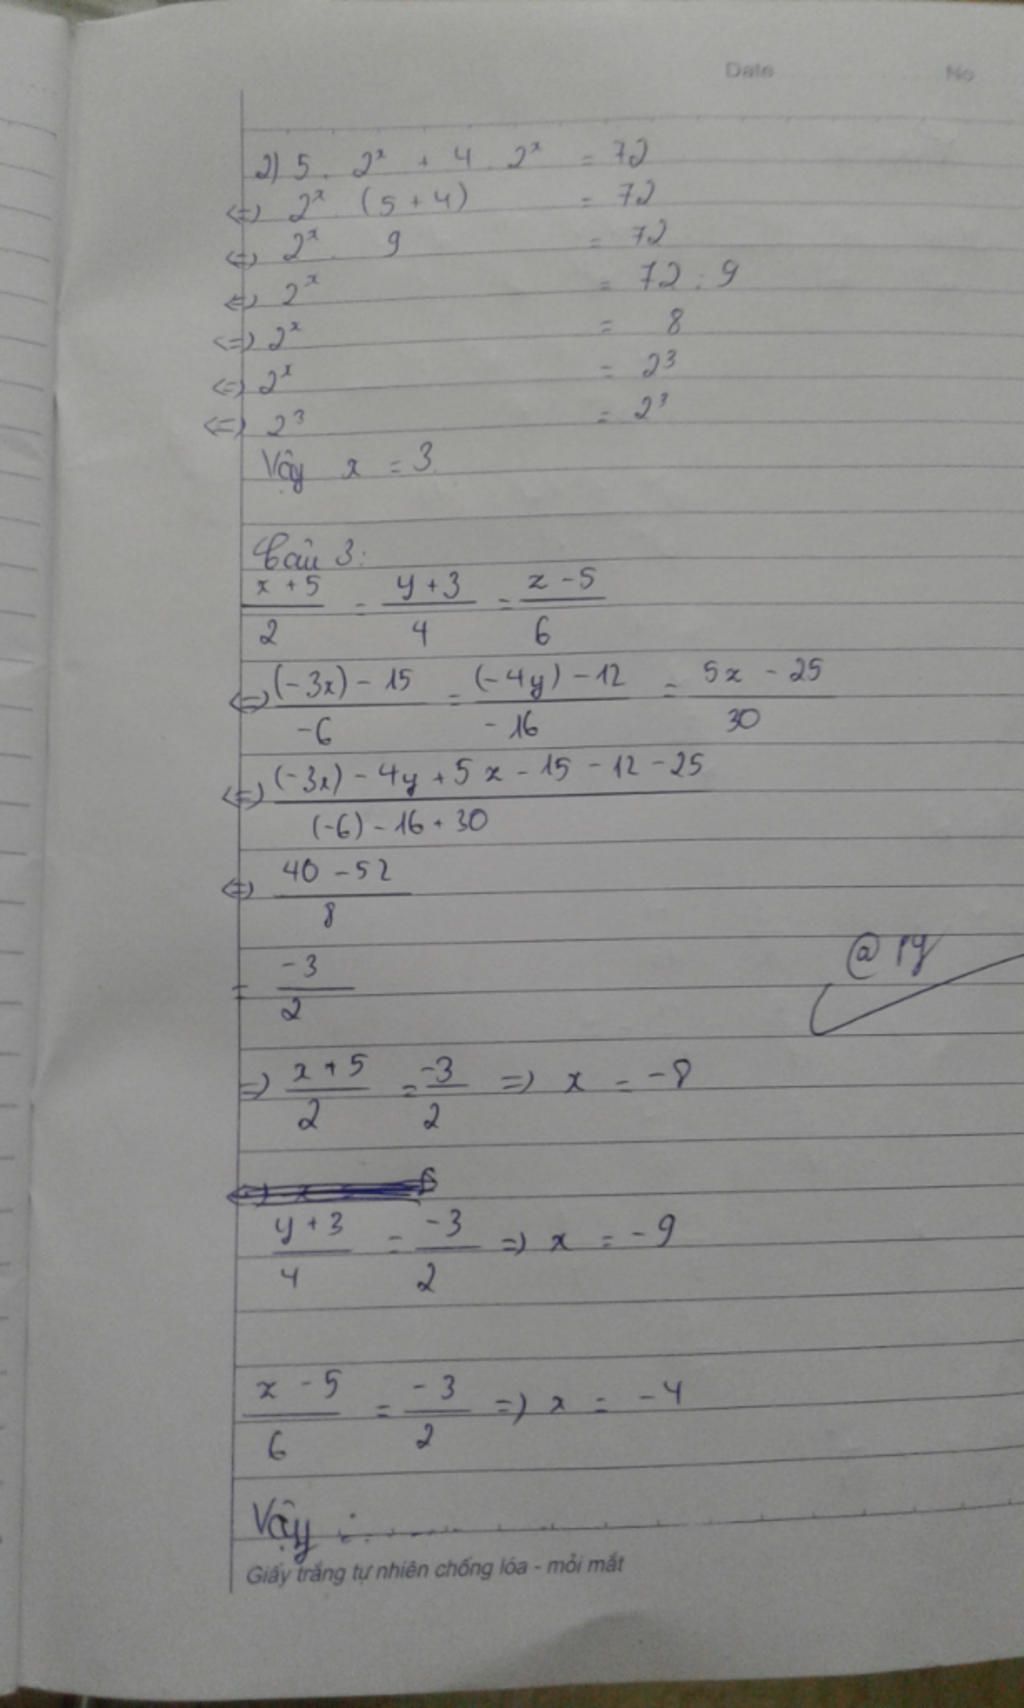 Date No
2) 5 . 2ˣ + 4 . 2ˣ = 72
<=> 2ˣ . (5 + 4) = 72
<=> 2ˣ . 9 = 72
<=> 2ˣ = 72 : 9
<=> 2ˣ = 8
<=> 2ˣ = 2³
<=> 2³ = 2³
Vậy x = 3
Câu 3:
(x + 5)/2 = (y + 3)/4 = (z - 5)/6
<=> ((-3x) - 15)/-6 = ((-4y) - 12)/-16 = (5z - 25)/30
<=> ((-3x) - 4y + 5z - 15 - 12 - 25)/((-6) - 16 + 30)
<=> (40 - 52)/8
@ py
= -3/2
=> (x + 5)/2 = -3/2 => x = -8
(y + 3)/4 = -3/2 => x = -9
(z - 5)/6 = -3/2 => x = -4
Vậy : ........
Giấy trắng tự nhiên chống lóa - mỏi mắt